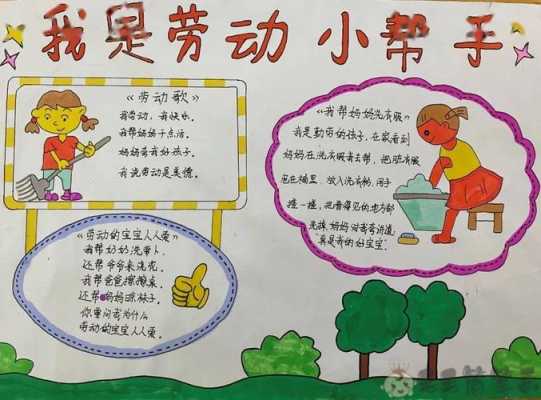 我是劳动小帮手
《劳动歌》
我劳动，我快乐。
我帮妈妈干点活。
妈妈夸我好孩子。
我说劳动是美德。
《劳动的宝宝人人爱》
我帮奶奶洗萝卜，
还帮爷爷来浇花。
我帮爸爸擦擦桌，
还帮妈妈晾袜子。
你要问我为什么
劳动的宝宝人人爱。
《我帮妈妈洗衣服》
我是勤劳的孩子，在家看到
妈妈在洗衣服我去帮，把脏衣服
泡在桶里，放入洗衣粉，用手
搓一搓，
妈妈对我夸讲道
"真是我的好宝宝"